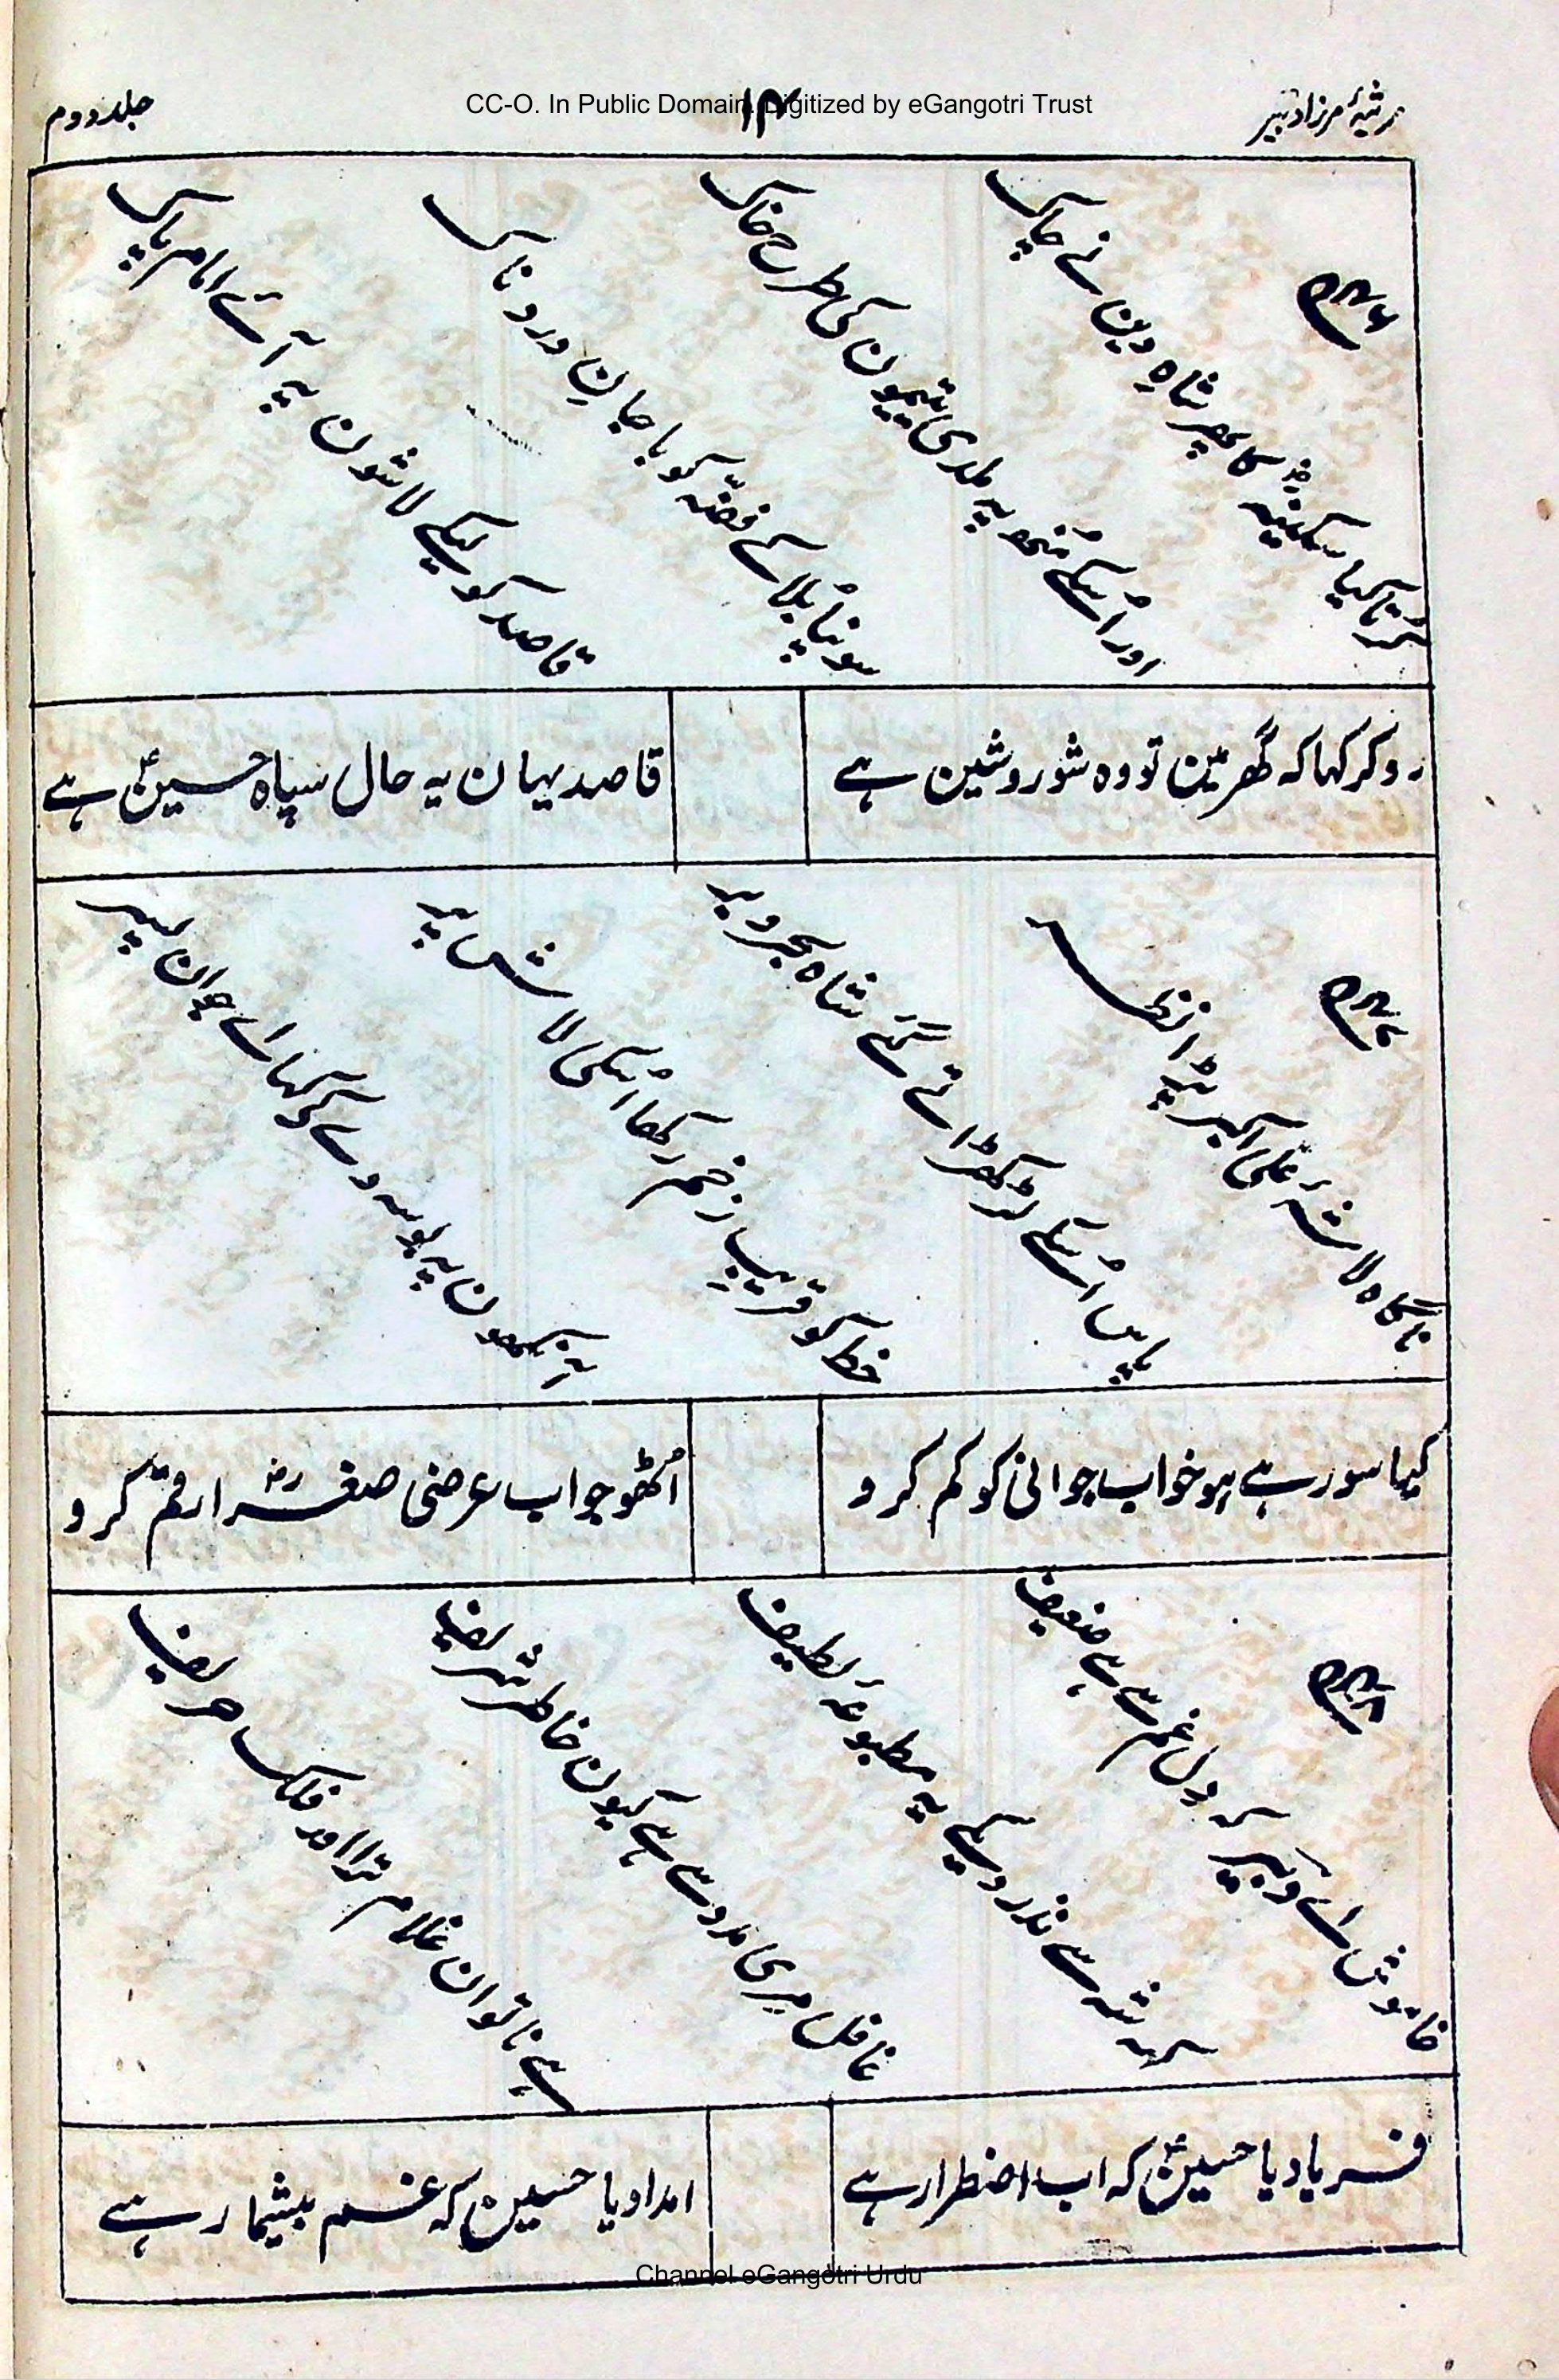 مرثیۂ مرزا دبیر
CC-O. In Public Domain. Digitized by eGangotri Trust
جلد دوم
کرتا کیا سکینہؑ کا پھر شاہِ دین نے چاک
اور اُسکے مُنھ پہ ملدی یتیمون کی طرح خاک
سونپا بُلا کے فضّہ کو با جانِ دردناک
قاصد کو لیکے لاشون پہ آئے امام پاک
رو کر کہا کہ گھر مین تو وہ شور و شین ہے
قاصد یہان یہ حال سپاہ حسینؑ ہے
ناگاہ لاشۂ علی اکبر پڑا نظر
پاس اُسکے لڑکھڑاتے گئے شاہ بحر و بر
خط کو قریبِ زخم رکھا اُسکی لاش پر
آنکھون پہ بوسہ دے کے کہا اے جوان پسر
کیا سو رہے ہو خواب جوانی کو کم کرو
اُٹھو جواب عرضی صغرا رقم کرو
خاموش اے دبیر کہ دل غم سے ہے ضعیف
کہ شہ سے نذر دیکے یہ مطبوعۂ لطیف
غافل مری مدد سے ہے کیون خاطر شریف
ہے ناتوان غلام ترا اور فلک حریف
فریاد یا حسینؑ کہ اب اضطرار ہے
امداد یا حسینؑ کہ غم بیشمار ہے
Channel eGangotri Urdu